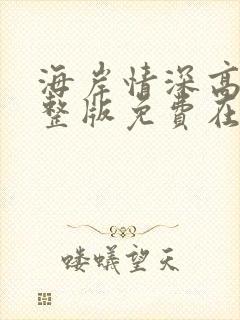 海岸情深高
整版免費在
喽蟻望天